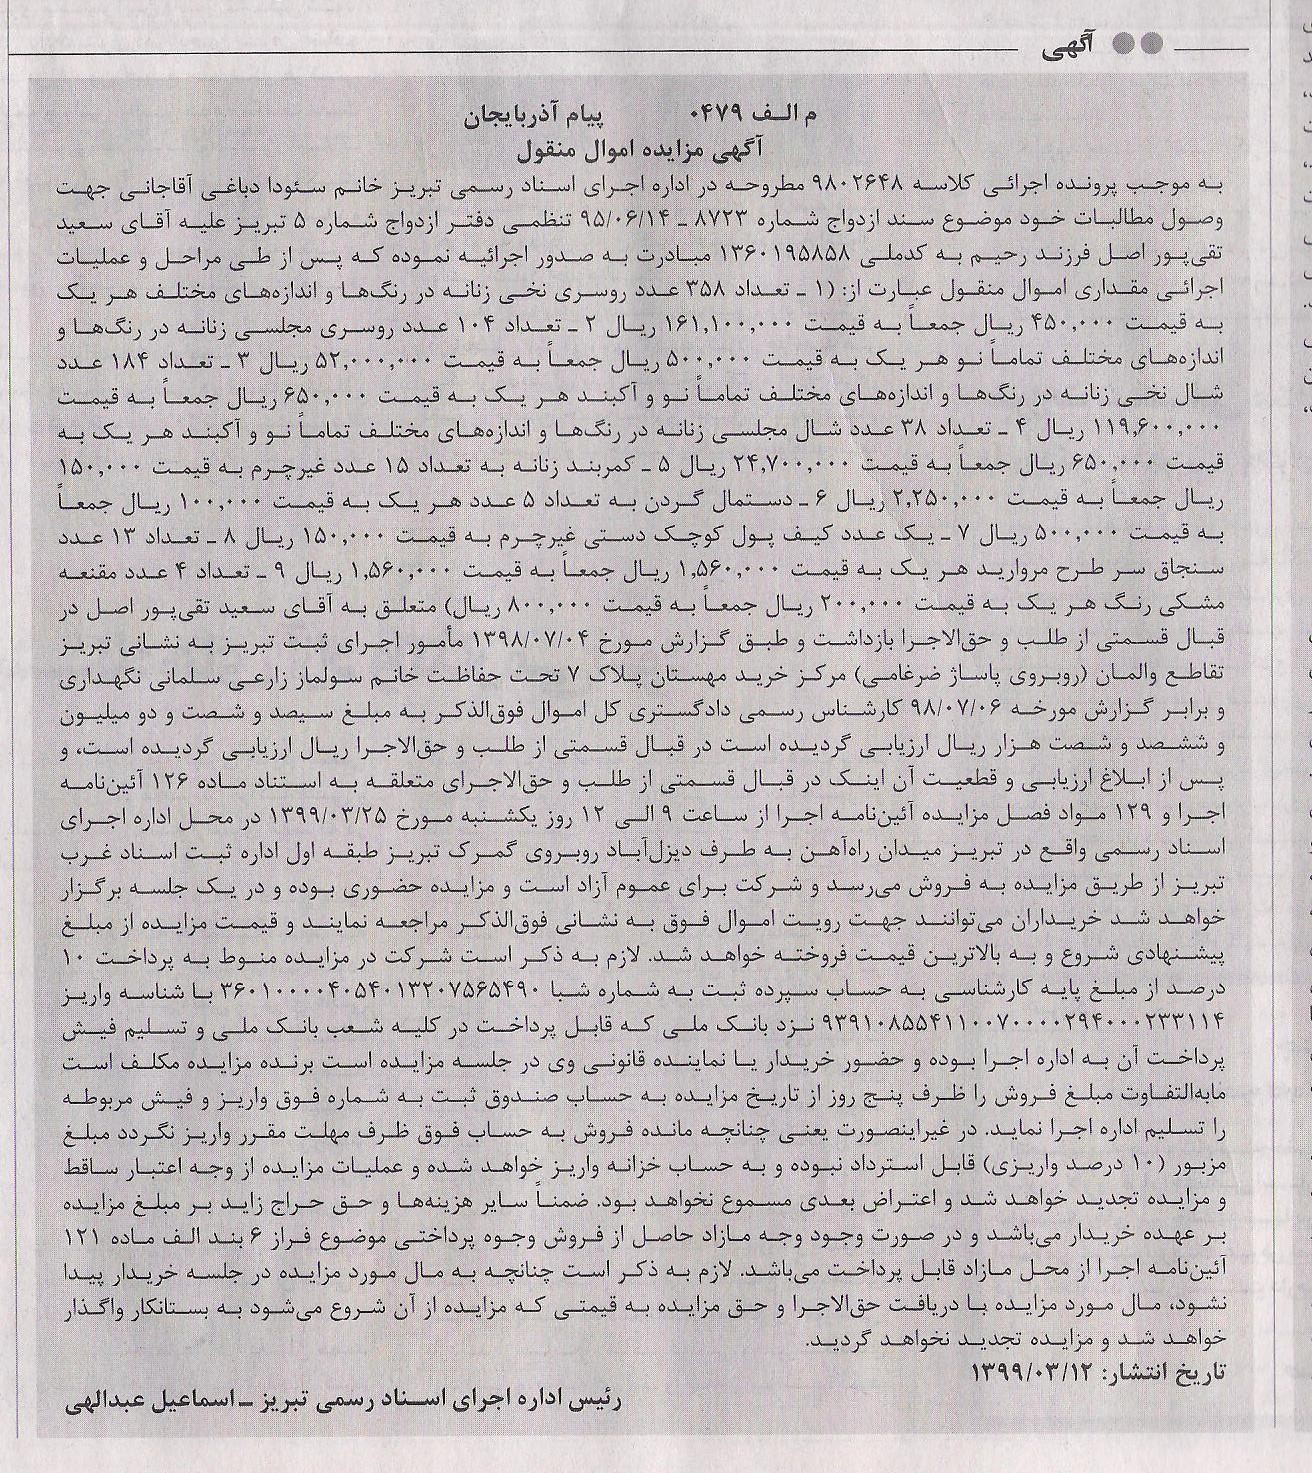 آگهی
م الف ۰۴۷۹ پیام آذربایجان
آگهی مزایده اموال منقول
به موجب پرونده اجرائی کلاسه ۹۸۰۲۶۴۸ مطروحه در اداره اجرای اسناد رسمی تبریز خانم سئودا دباغی آقاجانی جهت
وصول مطالبات خود موضوع سند ازدواج شماره ۸۷۲۳ ـ ۹۵/۰۶/۱۴ تنظمی دفتر ازدواج شماره ۵ تبریز علیه آقای سعید
تقی‌پور اصل فرزند رحیم به کدملی ۱۳۶۰۱۹۵۸۵۸ مبادرت به صدور اجرائیه نموده که پس از طی مراحل و عملیات
اجرائی مقداری اموال منقول عبارت از: (۱ ـ تعداد ۳۵۸ عدد روسری نخی زنانه در رنگ‌ها و اندازه‌های مختلف هر یک
به قیمت ۴۵۰,۰۰۰ ریال جمعاً به قیمت ۱۶۱,۱۰۰,۰۰۰ ریال ۲ ـ تعداد ۱۰۴ عدد روسری مجلسی زنانه در رنگ‌ها و
اندازه‌های مختلف تماماً نو هر یک به قیمت ۵۰۰,۰۰۰ ریال جمعاً به قیمت ۵۲,۰۰۰,۰۰۰ ریال ۳ ـ تعداد ۱۸۴ عدد
شال نخی زنانه در رنگ‌ها و اندازه‌های مختلف تماماً نو و آکبند هر یک به قیمت ۶۵۰,۰۰۰ ریال جمعاً به قیمت
۱۱۹,۶۰۰,۰۰۰ ریال ۴ ـ تعداد ۳۸ عدد شال مجلسی زنانه در رنگ‌ها و اندازه‌های مختلف تماماً نو و آکبند هر یک به
قیمت ۶۵۰,۰۰۰ ریال جمعاً به قیمت ۲۴,۷۰۰,۰۰۰ ریال ۵ ـ کمربند زنانه به تعداد ۱۵ عدد غیرچرم به قیمت ۱۵۰,۰۰۰
ریال جمعاً به قیمت ۲,۲۵۰,۰۰۰ ریال ۶ ـ دستمال گردن به تعداد ۵ عدد هر یک به قیمت ۱۰۰,۰۰۰ ریال جمعاً
به قیمت ۵۰۰,۰۰۰ ریال ۷ ـ یک عدد کیف پول کوچک دستی غیرچرم به قیمت ۱۵۰,۰۰۰ ریال ۸ ـ تعداد ۱۳ عدد
سنجاق سر طرح مروارید هر یک به قیمت ۱,۵۶۰,۰۰۰ ریال جمعاً به قیمت ۱,۵۶۰,۰۰۰ ریال ۹ ـ تعداد ۴ عدد مقنعه
مشکی رنگ هر یک به قیمت ۲۰۰,۰۰۰ ریال جمعاً به قیمت ۸۰۰,۰۰۰ ریال) متعلق به آقای سعید تقی‌پور اصل در
قبال قسمتی از طلب و حق‌الاجرا بازداشت و طبق گزارش مورخ ۱۳۹۸/۰۷/۰۴ مأمور اجرای ثبت تبریز به نشانی تبریز
تقاطع والمان (روبروی پاساژ ضرغامی) مرکز خرید مهستان پلاک ۷ تحت حفاظت خانم سولماز زارعی سلمانی نگهداری
و برابر گزارش مورخه ۹۸/۰۷/۰۶ کارشناس رسمی دادگستری کل اموال فوق‌الذکر به مبلغ سیصد و شصت و دو میلیون
و ششصد و شصت هزار ریال ارزیابی گردیده است در قبال قسمتی از طلب و حق‌الاجرا ریال ارزیابی گردیده است، و
پس از ابلاغ ارزیابی و قطعیت آن اینک در قبال قسمتی از طلب و حق‌الاجرای متعلقه به استناد ماده ۱۲۶ آئین‌نامه
اجرا و ۱۲۹ مواد فصل مزایده آئین‌نامه اجرا از ساعت ۹ الی ۱۲ روز یکشنبه مورخ ۱۳۹۹/۰۳/۲۵ در محل اداره اجرای
اسناد رسمی واقع در تبریز میدان راه‌آهن به طرف دیزل‌آباد روبروی گمرک تبریز طبقه اول اداره ثبت اسناد غرب
تبریز از طریق مزایده به فروش می‌رسد و شرکت برای عموم آزاد است و مزایده حضوری بوده و در یک جلسه برگزار
خواهد شد خریداران می‌توانند جهت رویت اموال فوق به نشانی فوق‌الذکر مراجعه نمایند و قیمت مزایده از مبلغ
پیشنهادی شروع و به بالاترین قیمت فروخته خواهد شد. لازم به ذکر است شرکت در مزایده منوط به پرداخت ۱۰
درصد از مبلغ پایه کارشناسی به حساب سپرده ثبت به شماره شبا ۳۶۰۱۰۰۰۰۴۰۵۴۰۱۳۲۰۷۵۶۵۴۹۰ با شناسه واریز
۹۳۹۱۰۸۵۵۴۱۱۰۰۷۰۰۰۰۲۹۴۰۰۰۲۳۳۱۱۴ نزد بانک ملی که قابل پرداخت در کلیه شعب بانک ملی و تسلیم فیش
پرداخت آن به اداره اجرا بوده و حضور خریدار یا نماینده قانونی وی در جلسه مزایده است برنده مزایده مکلف است
مابه‌التفاوت مبلغ فروش را ظرف پنج روز از تاریخ مزایده به حساب صندوق ثبت به شماره فوق واریز و فیش مربوطه
را تسلیم اداره اجرا نماید. در غیراینصورت یعنی چنانچه مانده فروش به حساب فوق ظرف مهلت مقرر واریز نگردد مبلغ
مزبور (۱۰ درصد واریزی) قابل استرداد نبوده و به حساب خزانه واریز خواهد شده و عملیات مزایده از وجه اعتبار ساقط
و مزایده تجدید خواهد شد و اعتراض بعدی مسموع نخواهد بود. ضمناً سایر هزینه‌ها و حق حراج زاید بر مبلغ مزایده
بر عهده خریدار می‌باشد و در صورت وجود وجه مازاد حاصل از فروش وجوه پرداختی موضوع فراز ۶ بند الف ماده ۱۲۱
آئین‌نامه اجرا از محل مازاد قابل پرداخت می‌باشد. لازم به ذکر است چنانچه به مال مورد مزایده در جلسه خریدار پیدا
نشود، مال مورد مزایده با دریافت حق‌الاجرا و حق مزایده به قیمتی که مزایده از آن شروع می‌شود به بستانکار واگذار
خواهد شد و مزایده تجدید نخواهد گردید.
تاریخ انتشار: ۱۳۹۹/۰۳/۱۲
رئیس اداره اجرای اسناد رسمی تبریز ـ اسماعیل عبدالهی